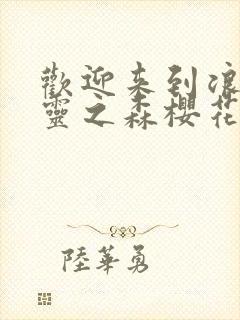 歡迎来到浪
靈之森櫻花
陸華勇